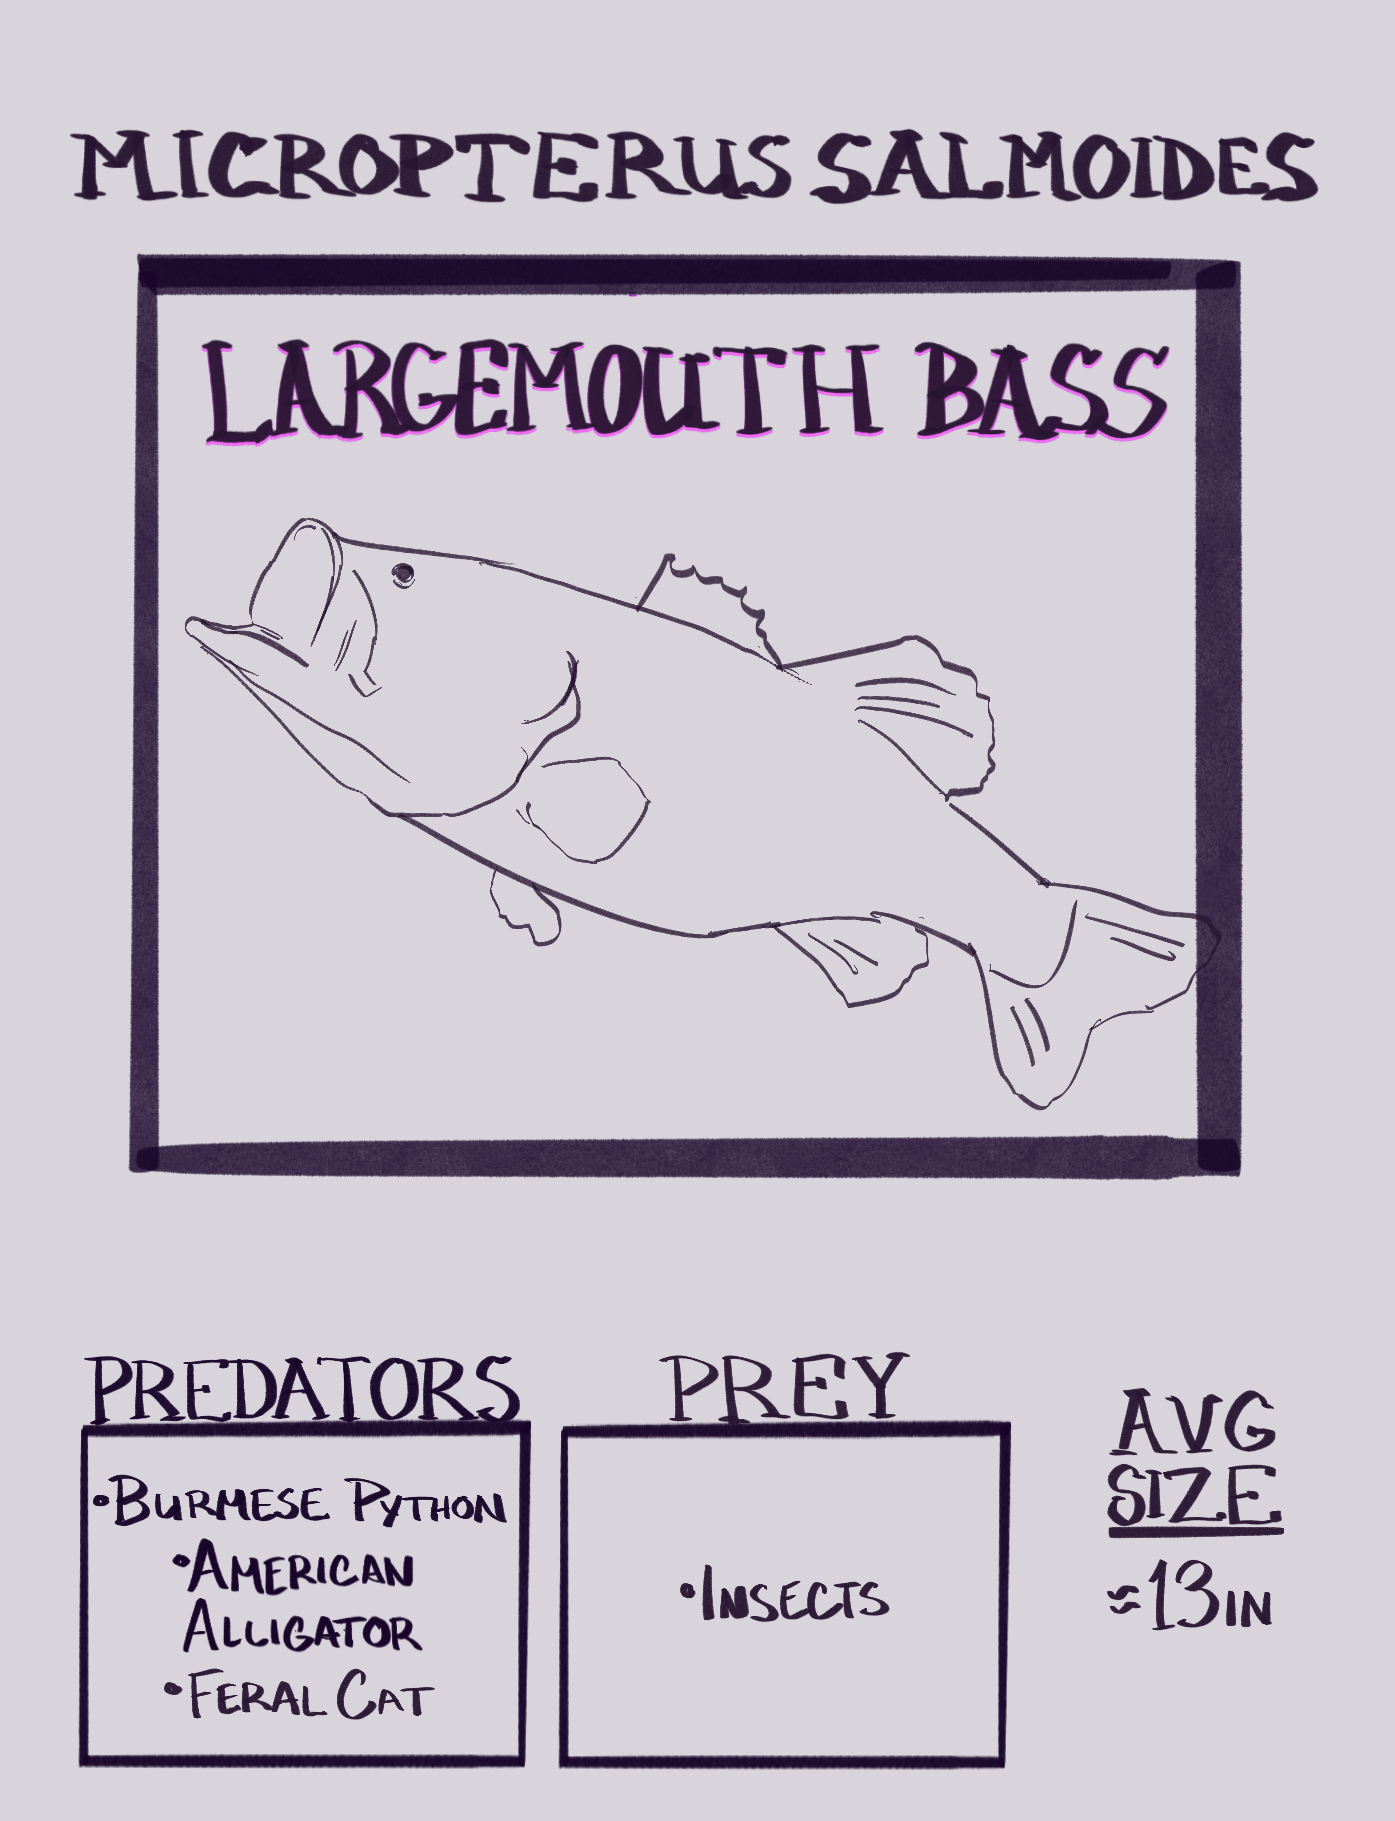 MICROPTERUS SALMOIDES
LARGEMOUTH BASS
PREDATORS
•BURMESE PYTHON
•AMERICAN
ALLIGATOR
•FERAL CAT
PREY
•INSECTS
AVG
SIZE
≈13IN